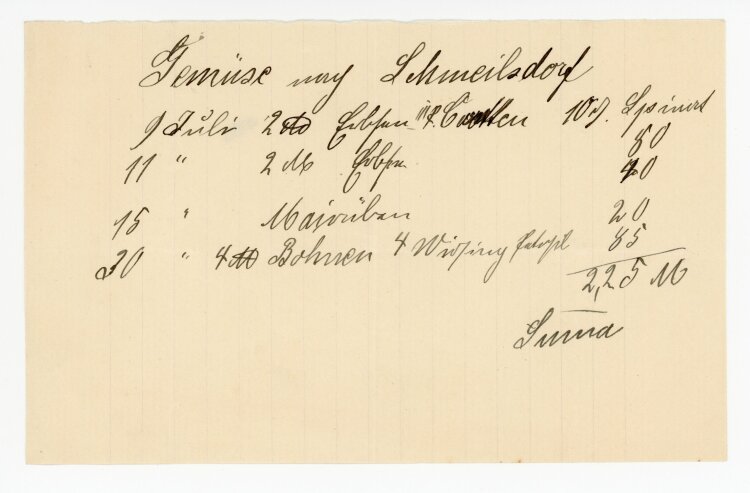 Gemüse nay Schmeilsdorf
9 Juli 2 ℔ Erbsen Carotten 10 ₰. Spinat
80
11 " 2 ℔ Erbsen 40
15 " Majorüben 20
30 " 4 ℔ Bohnen 4 Wirsing 85
2,25 M
Suma